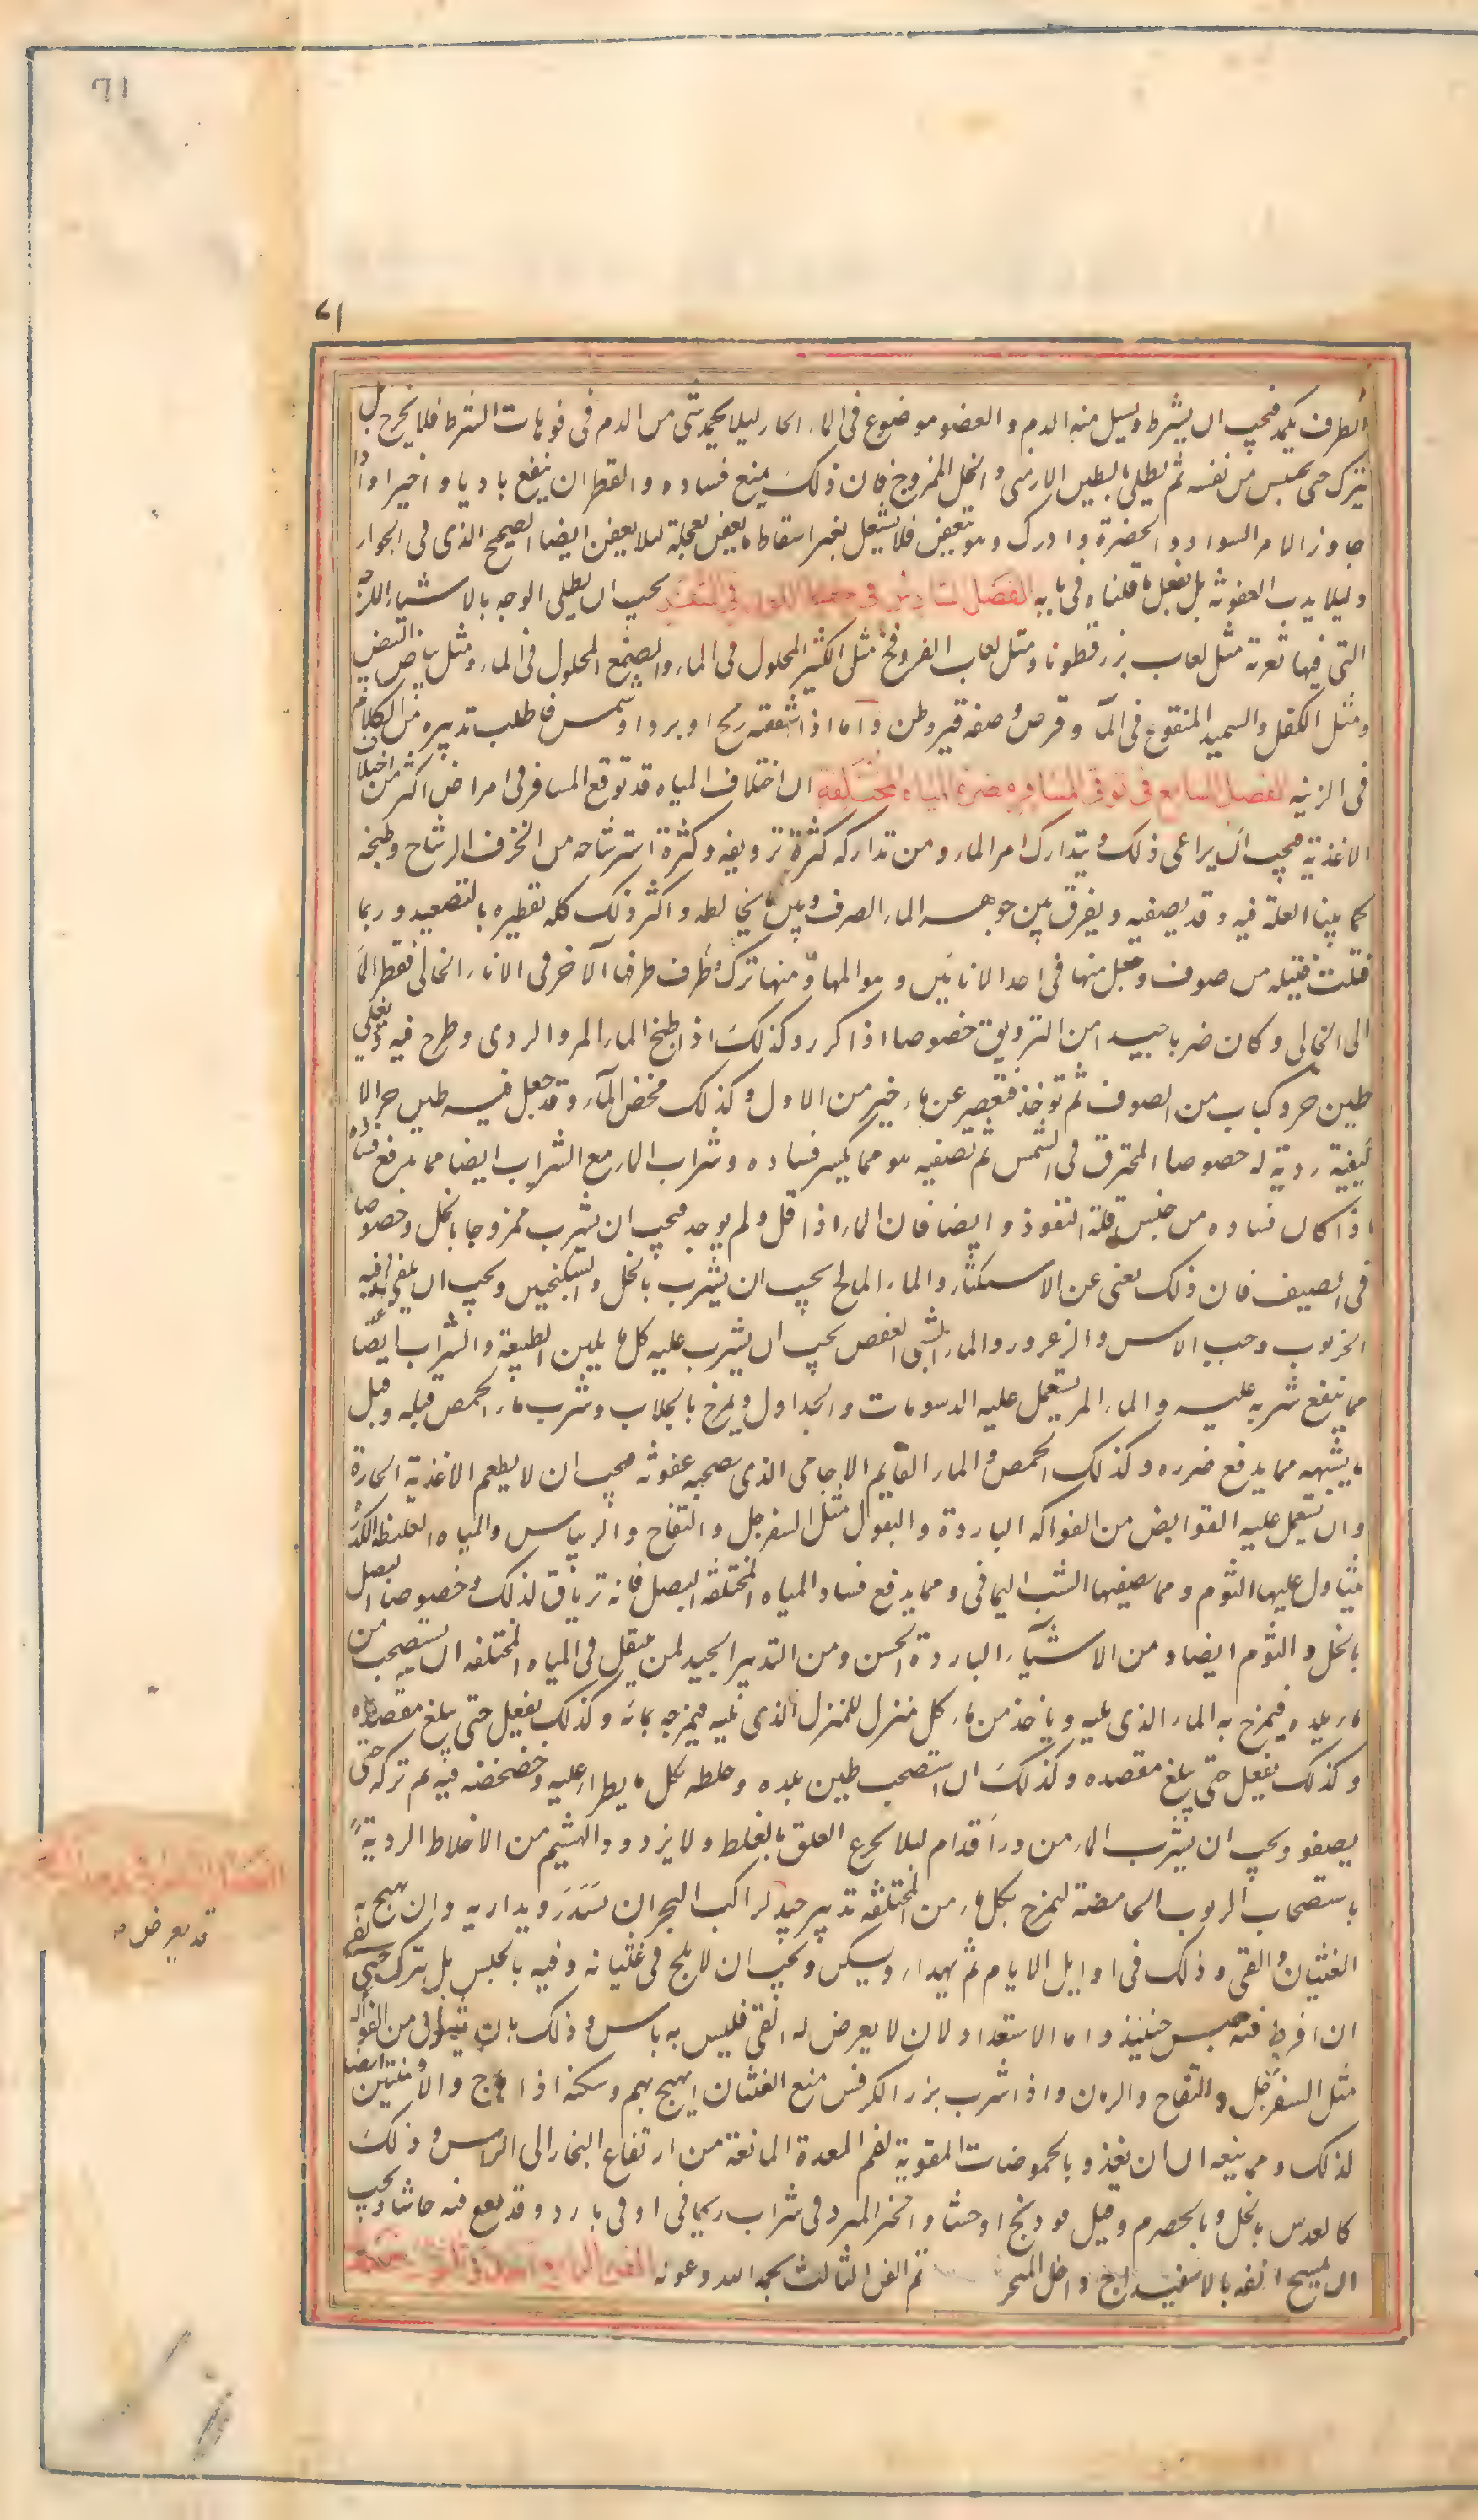 71
٧١
الطرف يكمد فيجب ان يشرط ويسيل منه الدم والعضو موضوع فى الماء الحار ليلا يجمد شى من الدم فى فوهات الشرط فلا يخرج بل
يترك حتى يحتبس من نفسه ثم يطلى بالطين الارمنى والخل الممزوج فان ذلك يمنع فساده والقطران ينفع باديا واخيرا واذا
جاوز الامر السواد والخضرة وادرك وهو يتعفن فلا يشتغل بغير اسقاط ما يعفن بعجلة ليلا يعفن ايضا الصحيح الذى فى الجوار
وليلا يدب العفونة بل يفعل ما قلناه فى بابه الفصل السادس فى حفظ اللون فى السفر يجب ان يطلى الوجه بالاشياء اللزجة
التى فيها تغرية مثل لعاب بزر قطونا ومثل لعاب العرفج مثل الكثيرا المحلول فى الماء والصمغ المحلول فى الماء ومثل بياض البيض
ومثل الكعك والسميد المنقوع فى الماء وقرص وصفه قيروطن واما اذا شققته ريح او برد او شمس فاطلب تدبيره من الكلام
فى الزينه الفصل السابع فى توقى المسافر مضرة المياه المختلفة ان اختلاف المياه قد توقع المسافر فى امراض اكثر من اختلاف
الاغذية فيجب ان يراعى ذلك ويتدارك امر الماء ومن تداركه كثرة ترويقه وكثرة استرشاحه من الخزف الرشاح وطبخه
كما بينا العلة فيه وقد يصفيه ويفرق بين جوهر الماء الصرف وبين ما يخالطه واكثر ذلك كله تقطيره بالتصعيد وربما
فتلت فتيله من صوف وجعل منها فى احد الاناءين وهو المملو منها ترك وطرف طرفها الآخر فى الاناء الخالى فقطر الماء
الى الخالى وكان ضربا جيدا من الترويق خصوصا اذا كرر وكذلك اذا طبخ الماء المر والردى وطرح فيه وهو يغلى
طين حر وكباب من الصوف ثم تؤخذ فتعصر عن ماء خير من الاول وكذلك مخض الماء وقد جعل فيه طين حر لا
كيفية ردية له خصوصا المحترق فى الشمس ثم تصفيه هو مما يكسر فساده وشراب الماء مع الشراب ايضا مما يدفع فساده
اذا كان فساده من جنس قلة النفوذ وايضا فان الماء اذا قل ولم يوجد فيجب ان يشرب ممزوجا بالخل وخصوصا
فى الصيف فان ذلك يغنى عن الاستكثار والماء المالح يجب ان يشرب بالخل والسكنجبين ويجب ان يلقى فيه
الخرنوب وحب الاس والزعرور والماء الشبى العفص يجب ان يشرب عليه كل ما يلين الطبيعة والشراب ايضا
مما ينفع شربه عليه والماء المر يستعمل عليه الدسومات والجداول ويمزج بالجلاب وشرب ماء الحمص قبله وقبل
ما يشبهه مما يدفع ضرره وكذلك الحمص والماء القايم الاجامى الذى يصحبه عفونة فيجب ان لا يطعم الاغذية الحارة
وان يستعمل عليه القوابض من الفواكه الباردة والبقول مثل السفرجل والتفاح والريباس والمياه الغليظه الكدرة
يتناول عليها الثوم ومما يصفيها الشب اليمانى ومما يدفع فساد المياه المختلفة البصل فانه ترياق لذلك وخصوصا البصل
بالخل والثوم ايضا ومن الاشياء الباردة الخس ومن التدبير الجيد لمن ينتقل فى المياه المختلفه ان يستصحب من
ماء بلده فيمزج به الماء الذى يليه وياخذ من ماء كل منزل للمنزل الذى يليه فيمزجه بمائه وكذلك يفعل حتى يبلغ مقصده
وكذلك يفعل حتى يبلغ مقصده وكذلك ان استصحب طين بلده وخلطه بكل ما يطرا عليه وخضخضه فيه ثم تركه حتى
يصفو ويجب ان يشرب الماء من ورا قدام ليلا يجرع العلق بالغلط ولا يزدرد الهشيم من الاخلاط الردية
باستصحاب الربوب الحامضة ليمزج بكل ماء من المختلفة تدبير جيد لراكب البحر ان يسدر ويدار به وان يهيج به
الغثيان والقى وذلك فى اوايل الايام ثم يهدا ويسكن ويجب ان لا يلج فى غثيانه وقيه بالحبس بل يترك حتى يقى
ان افرط فيه حبس حينيذ واما الاستعداد لان لا يعرض له القى فليس به باس وذلك بان يتناول من الفواكه
مثل السفرجل والتفاح والرمان واذا شرب بزر الكرفس منع الغثيان ان يهيج بهم وسكنه اذا هاج والافسنتين ايضا
لذلك ومما يمنعه ان ان يغذو بالحموضات المقوية لفم المعدة المانعة من ارتفاع البخار الى الراس وذلك
كالعدس بالخل وبالحصرم وقليل فودنج او حاشا والخبز المبرد فى شراب ريحانى او فى بارد وقد يقع فيه حاشا ويجب
ان يمسح انفه بالاسفيداج داخل المنخر تم الفن الثالث بحمد الله وعونه
قد يعرض